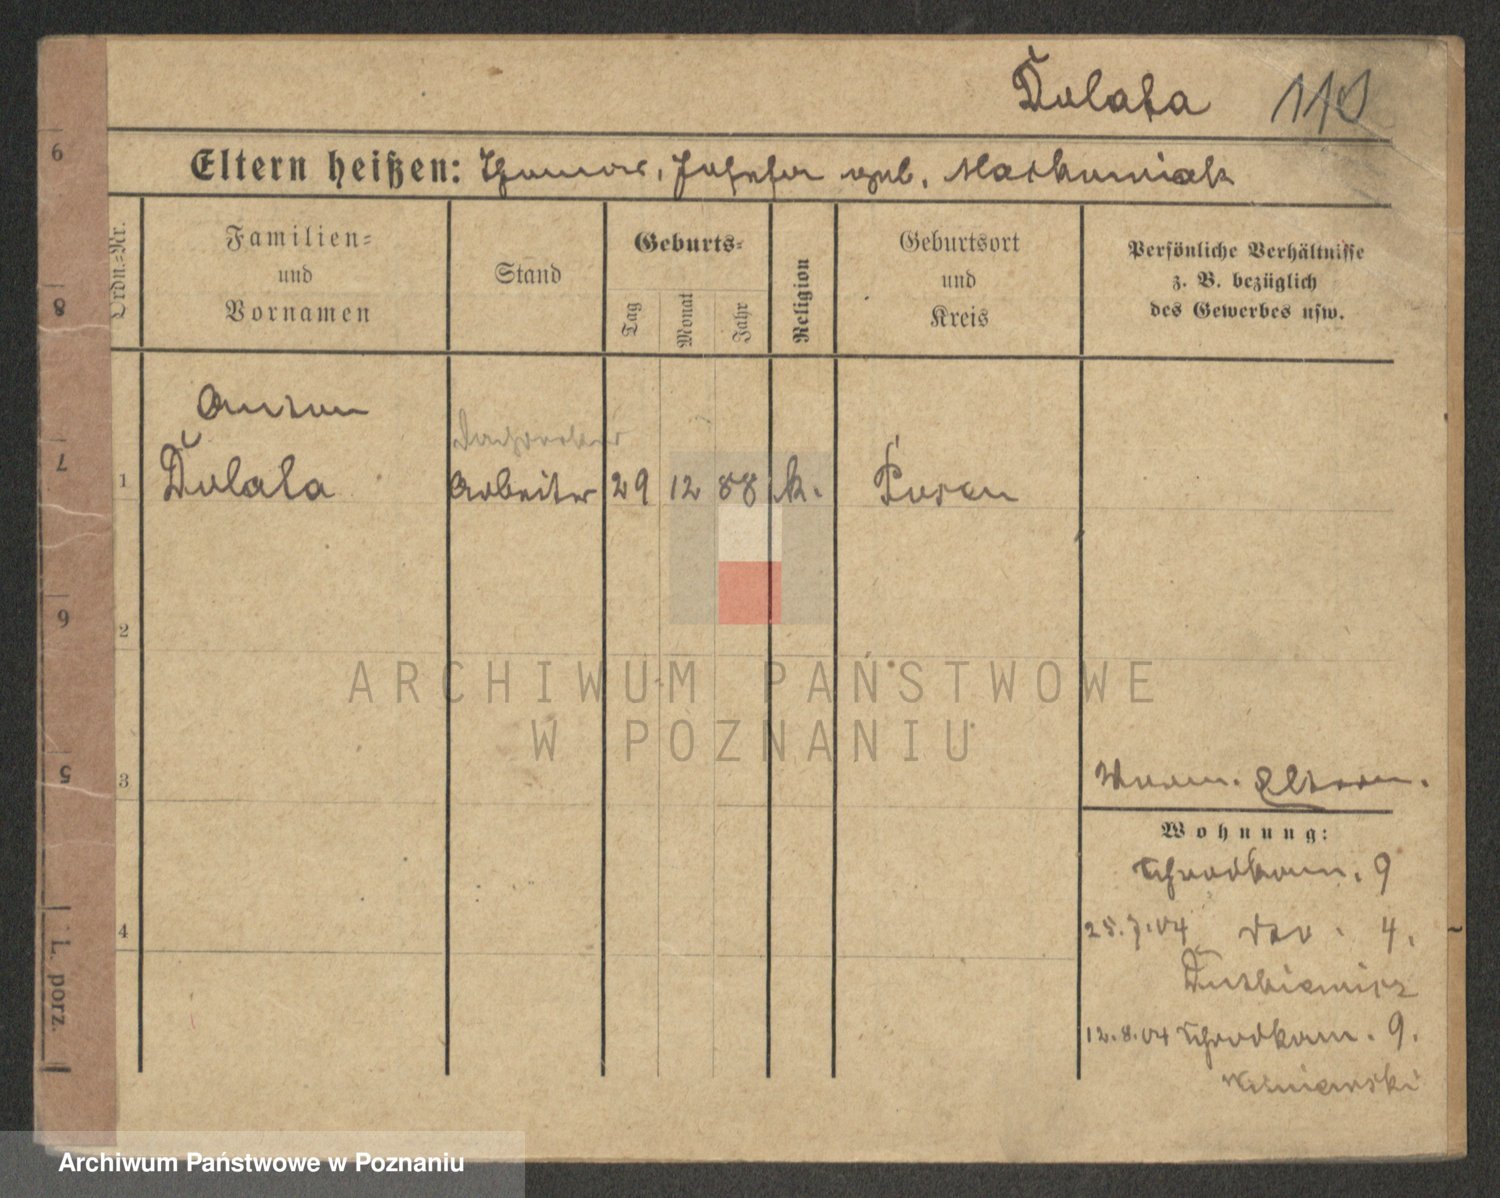 Dolata 110
Eltern heißen: Thomas, Josefa geb. Maćkowiak
Ordn.=Nr.
Familien=
und
Vornamen
Stand
Geburts=
Tag
Monat
Jahr
Religion
Geburtsort
und
Kreis
Persönliche Verhältnisse
z. B. bezüglich
des Gewerbes usw.
Anton
1 Dolata Arbeiter 29 12 88 k. Posen
2
3
4
Eltern.
Wohnung:
Schrodkam. 9
25.7.04 4.
12.8.04 Schrodkam. 9.
Wisniewski
9
8
7
6
5
L. porz.
ARCHIWUM PAŃSTWOWE
W POZNANIU
Archiwum Państwowe w Poznaniu